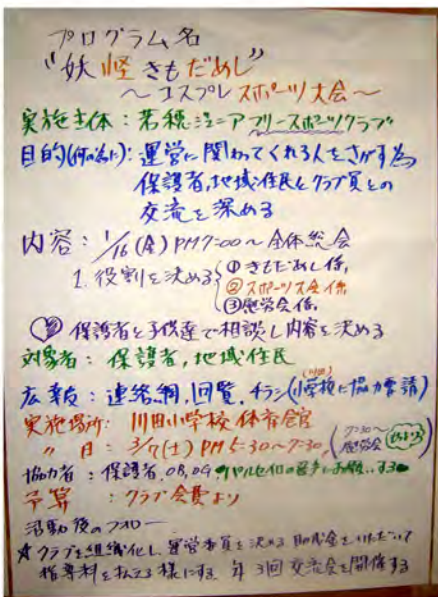 プログラム名
"妖怪きもだめし"
～コスプレスポーツ大会～
実施主体：若穂ジュニアフリースポーツクラブ
目的(何の為に)：運営に関わってくれる人をさがす為
保護者,地域住民とクラブ員との
交流を深める
内容：1/16(金)PM7:00～全体総会
1.役割を決める ①きもだめし係,
②スポーツ大会係
③慰労会係,
保護者と子供達で相談し内容を決める
対象者：保護者,地域住民
広報：連絡網,回覧,チラシ(小学校に協力要請)
実施場所：川田小学校体育館
〃日：3/7(土)PM5:30～7:30,(7:30～慰労会)
協力者：保護者,OB,OG,パルセイロの選手にお願いする
予算：クラブ会費より
活動後のフォロー
☆クラブを組織化し,運営委員を決める 助成金をいただいて
指導料を払える様にする 年3回交流会を開催する